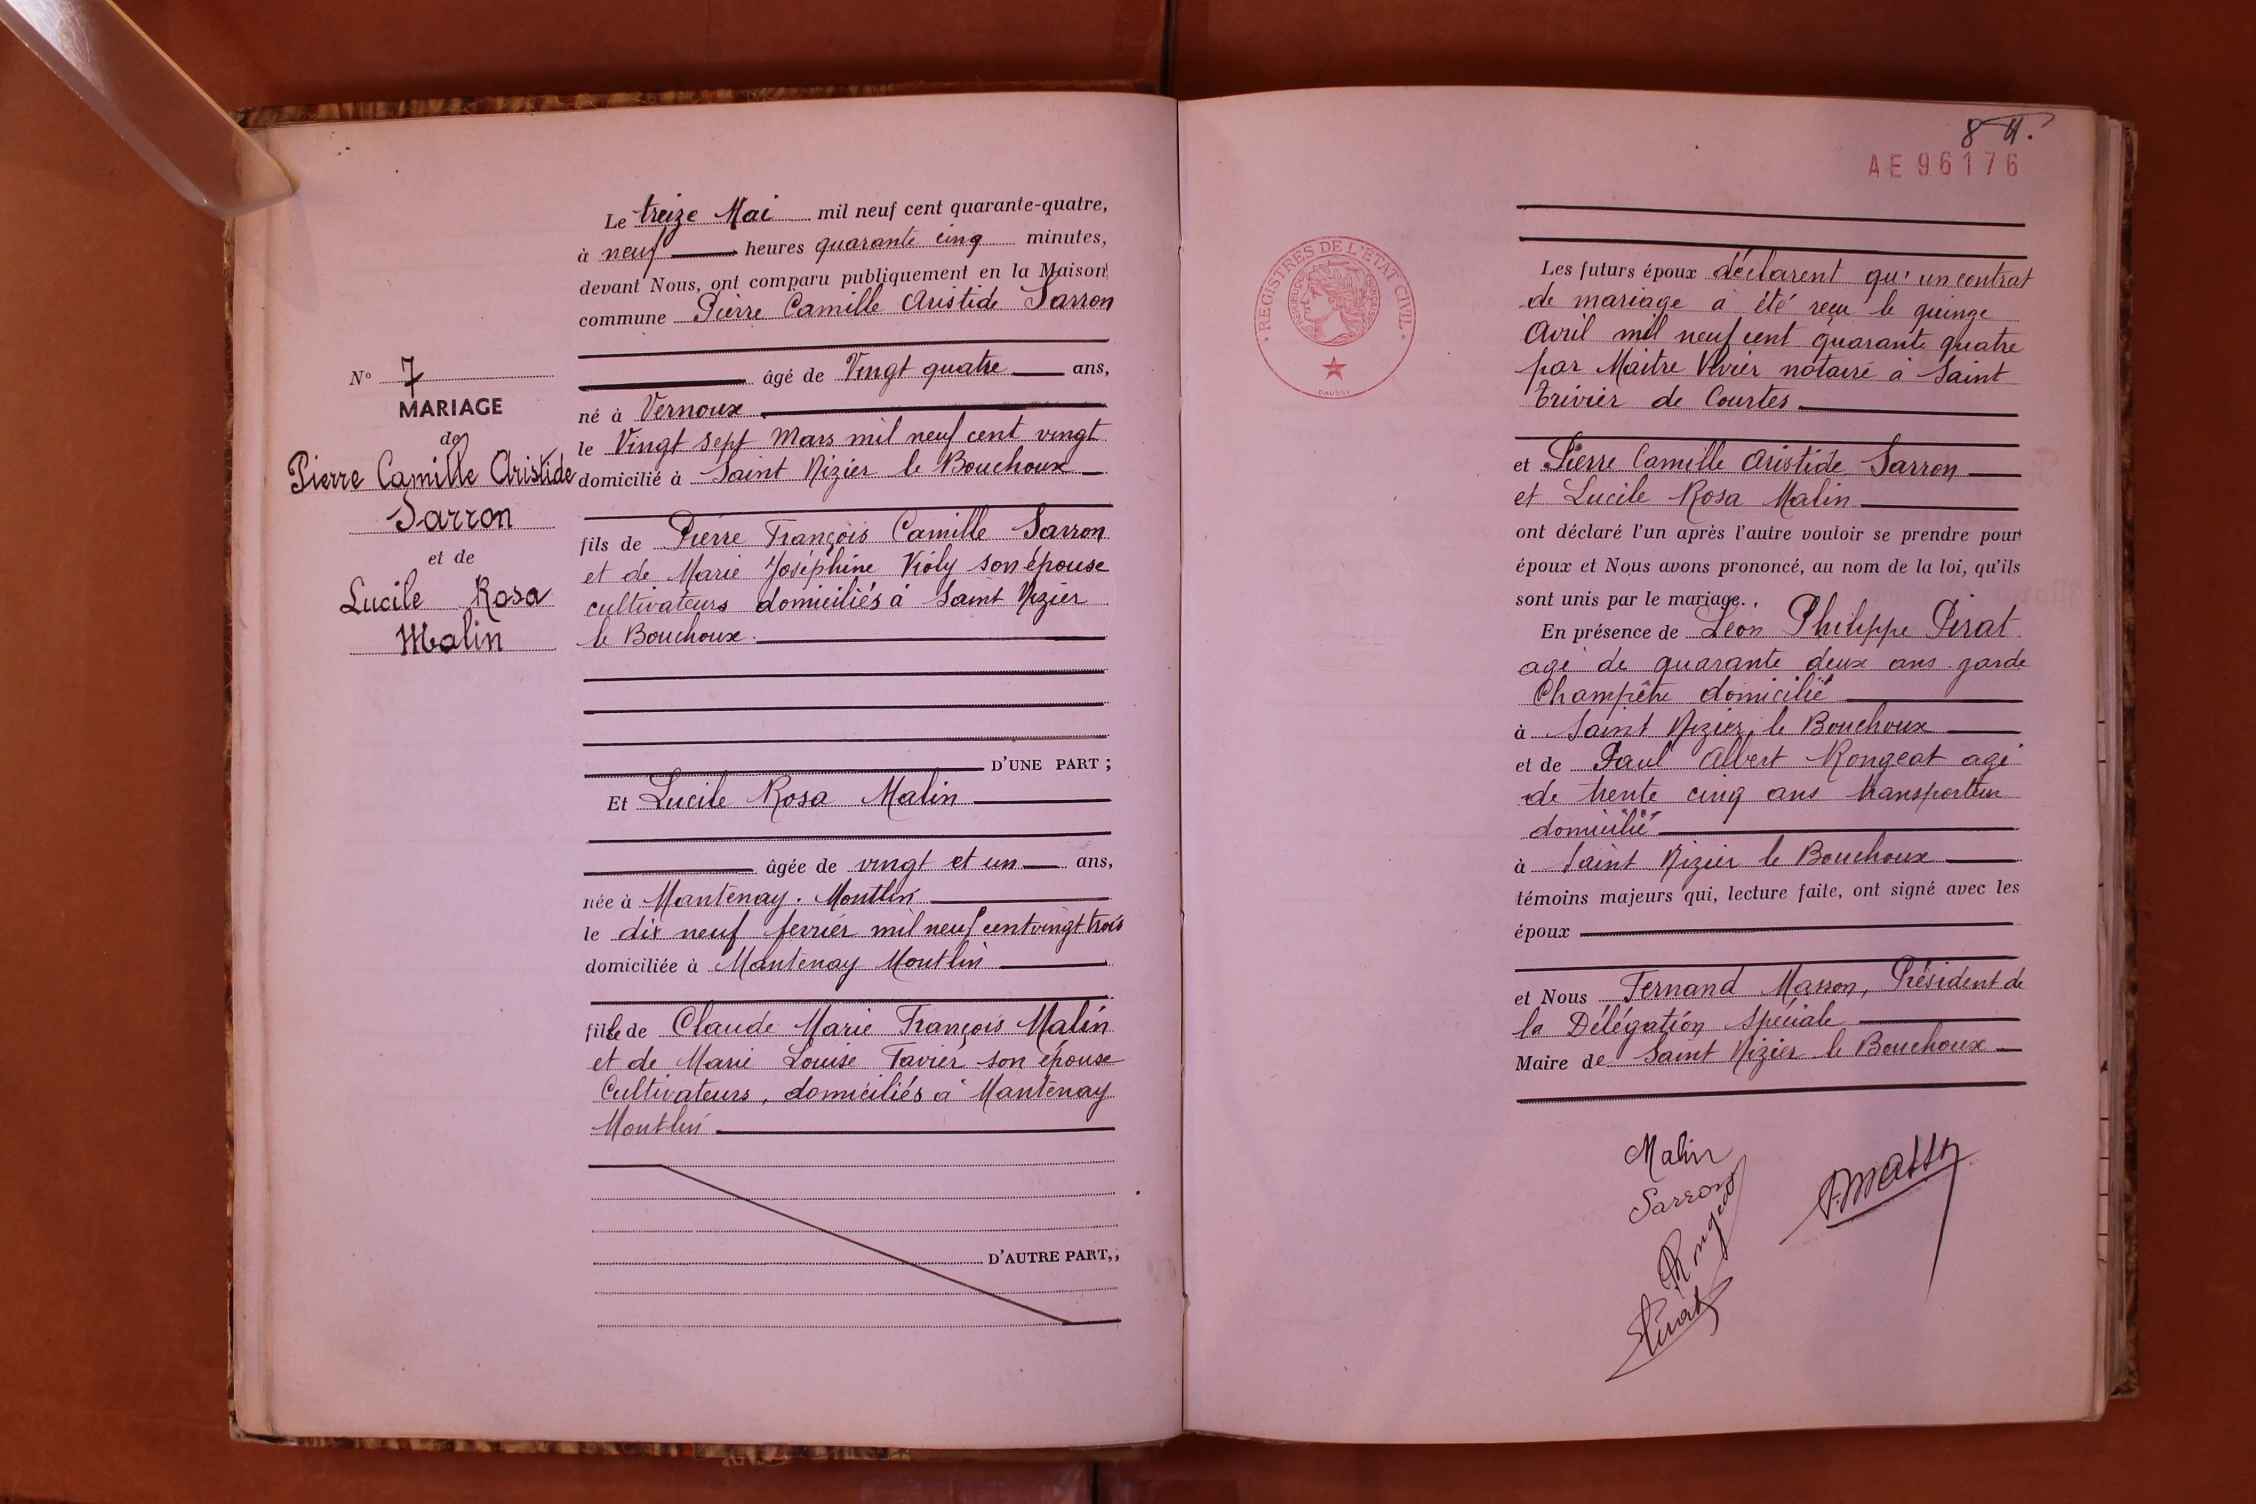 N° 7
MARIAGE
de
Pierre Camille Aristide
Sarron
et de
Lucile Rosa
Malin
Le treize Mai mil neuf cent quarante-quatre,
à neuf heures quarante cinq minutes,
devant Nous, ont comparu publiquement en la Maison
commune Pierre Camille Aristide Sarron
âgé de Vingt quatre ans,
né à Vernoux
le Vingt sept Mars mil neuf cent vingt
domicilié à Saint Nizier le Bouchoux
fils de Pierre François Camille Sarron
et de Marie Joséphine Violy son épouse
cultivateurs domiciliés à Saint Nizier
le Bouchoux.
D'UNE PART ;
Et Lucile Rosa Malin
âgée de vingt et un ans,
née à Mantenay. Montlin
le dix neuf fevrier mil neuf cent vingt trois
domiciliée à Mantenay Montlin
fille de Claude Marie François Malin
et de Marie Louise Favier son épouse
Cultivateurs, domiciliés à Mantenay
Montlin
D'AUTRE PART,,
84.
AE96176
REGISTRES DE L'ETAT CIVIL
Les futurs époux déclarent qu'un contrat
de mariage a été reçu le quinze
Avril mil neuf cent quarante quatre
par Maitre Vivier notaire à Saint
Trivier de Courtes
et Pierre Camille Aristide Sarron
et Lucile Rosa Malin
ont déclaré l'un après l'autre vouloir se prendre pour
époux et Nous avons prononcé, au nom de la loi, qu'ils
sont unis par le mariage.
En présence de Léon Philippe Pirat
agé de quarante deux ans garde
Champêtre domicilié
à Saint Nizier le Bouchoux
et de Paul Albert Rongeat agé
de trente cinq ans transporteur
domicilié
à Saint Nizier le Bouchoux
témoins majeurs qui, lecture faite, ont signé avec les
époux
et Nous Fernand Masson, Président de
la Délégation Spéciale
Maire de Saint Nizier le Bouchoux
Malin
Sarron
Rongeat
Pirat
F. Masson